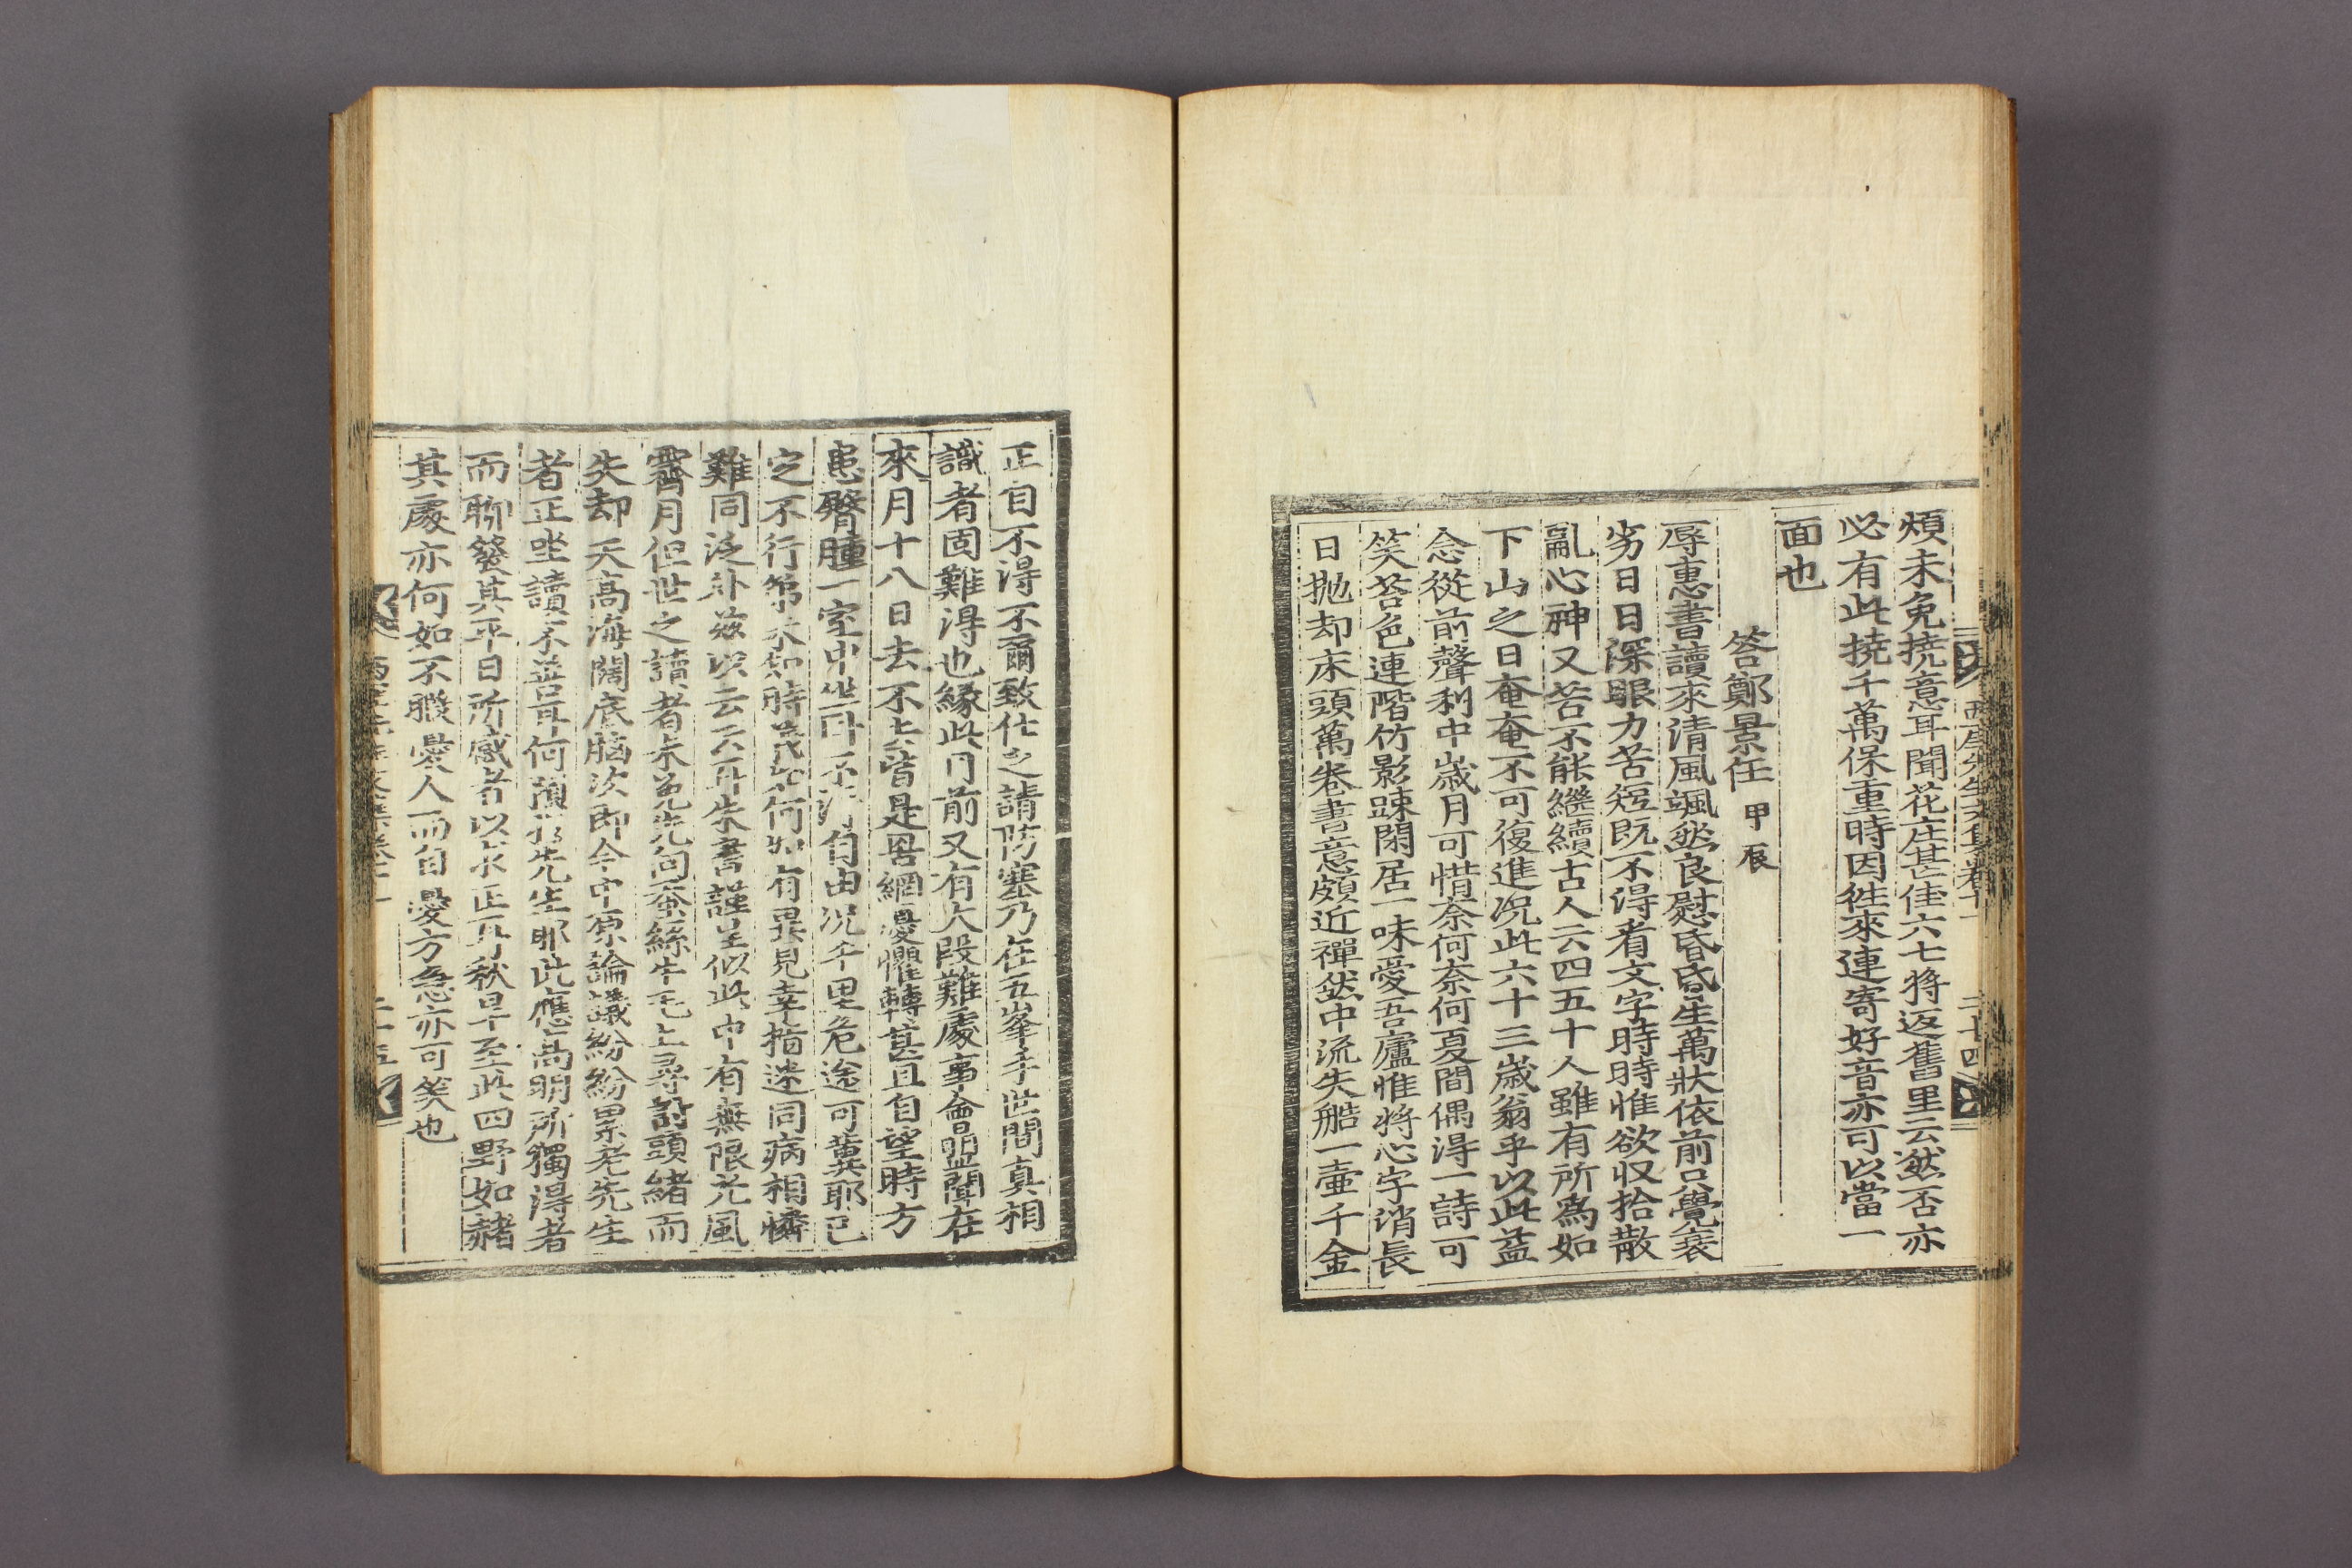 煩未免撓意耳聞花庄甚佳六七將返舊里云然否亦
必有此撓千萬保重時因徃來連寄好音亦可以當一
面也
答鄭景任 甲辰
辱惠書讀來清風颯然良慰昏昏生萬狀依前只覺衰
劣日日深眼力苦短既不得看文字時時惟欲収拾散
亂心神又苦不能繼續古人云四五十人雖有所爲如
下山之日奄奄不可復進况此六十三歲翁乎以此益
念從前聲利中歲月可惜奈何奈何夏間偶得一詩可
笑苔色連階竹影踈閑居一味愛吾廬惟將心字消長
日抛却床頭萬卷書意頗近禪然中流失船一壷千金
西厓先生文集卷十一 二十四
正自不得不爾致仕之請防塞乃在五峯乎世間真相
識者固難得也緣此門前又有大段難處事僉盟聞在
來月十八日去不去皆是罟網憂懼轉甚且自望時方
患臀腫一室中坐臥不得自由况千里危途可冀耶已
定不行第未知時義如何如有異見幸指迷同病相憐
難同泛外兹以云云耳朱書謹呈似此中有無限光風
霽月但世之讀者未免先向蚕絲牛毛上尋討頭緒而
失却天高海闊底腦次即今中原論議紛紛累老先生
者正坐讀不善耳何預於先生耶此應高明所獨得者
而聊發其平日所感者以求正耳秋旱至此四野如赭
其處亦何如不職憂人而自憂方急亦可笑也
西厓先生文集卷十一 二十五